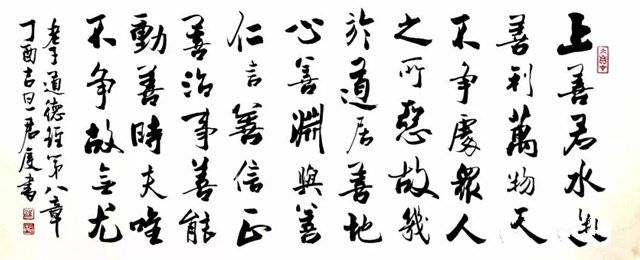 上善若水水
善利萬物而
不争處眾人
之所惡故幾
於道居善地
心善淵與善
仁言善信正
善治事善能
動善時夫唯
不争故無尤
老子道德經第八章
丁酉吉旦君度書